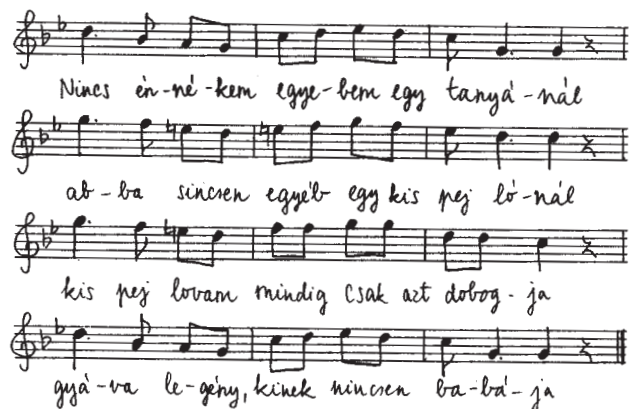 Nincs én-né-kem egye-bem egy tanyá-nál
ab-ba sincsen egyéb egy kis pej ló-nál
kis pej lovam mindig csak azt dobog-ja
gyá-va le-gény, kinek nincsen ba-bá-ja